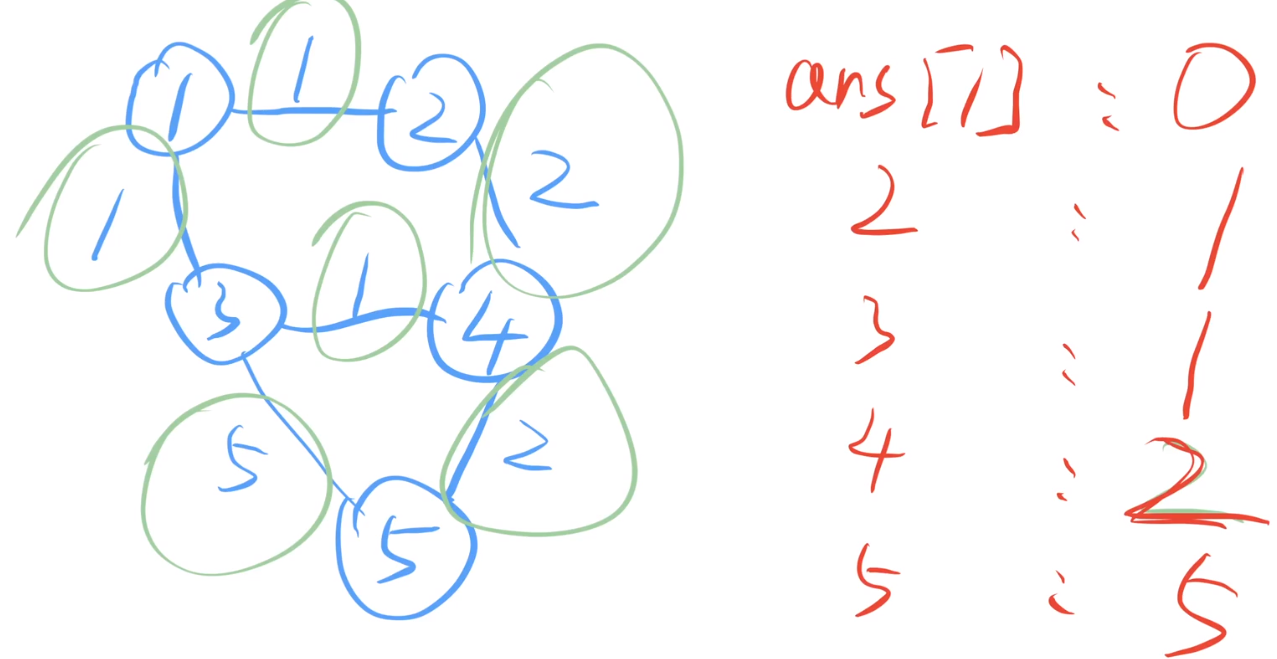 1 1 2
1 2
3 1 4
5 2
5
ans[1] : 0
2 : 1
3 : 1
4 : 2
5 : 5